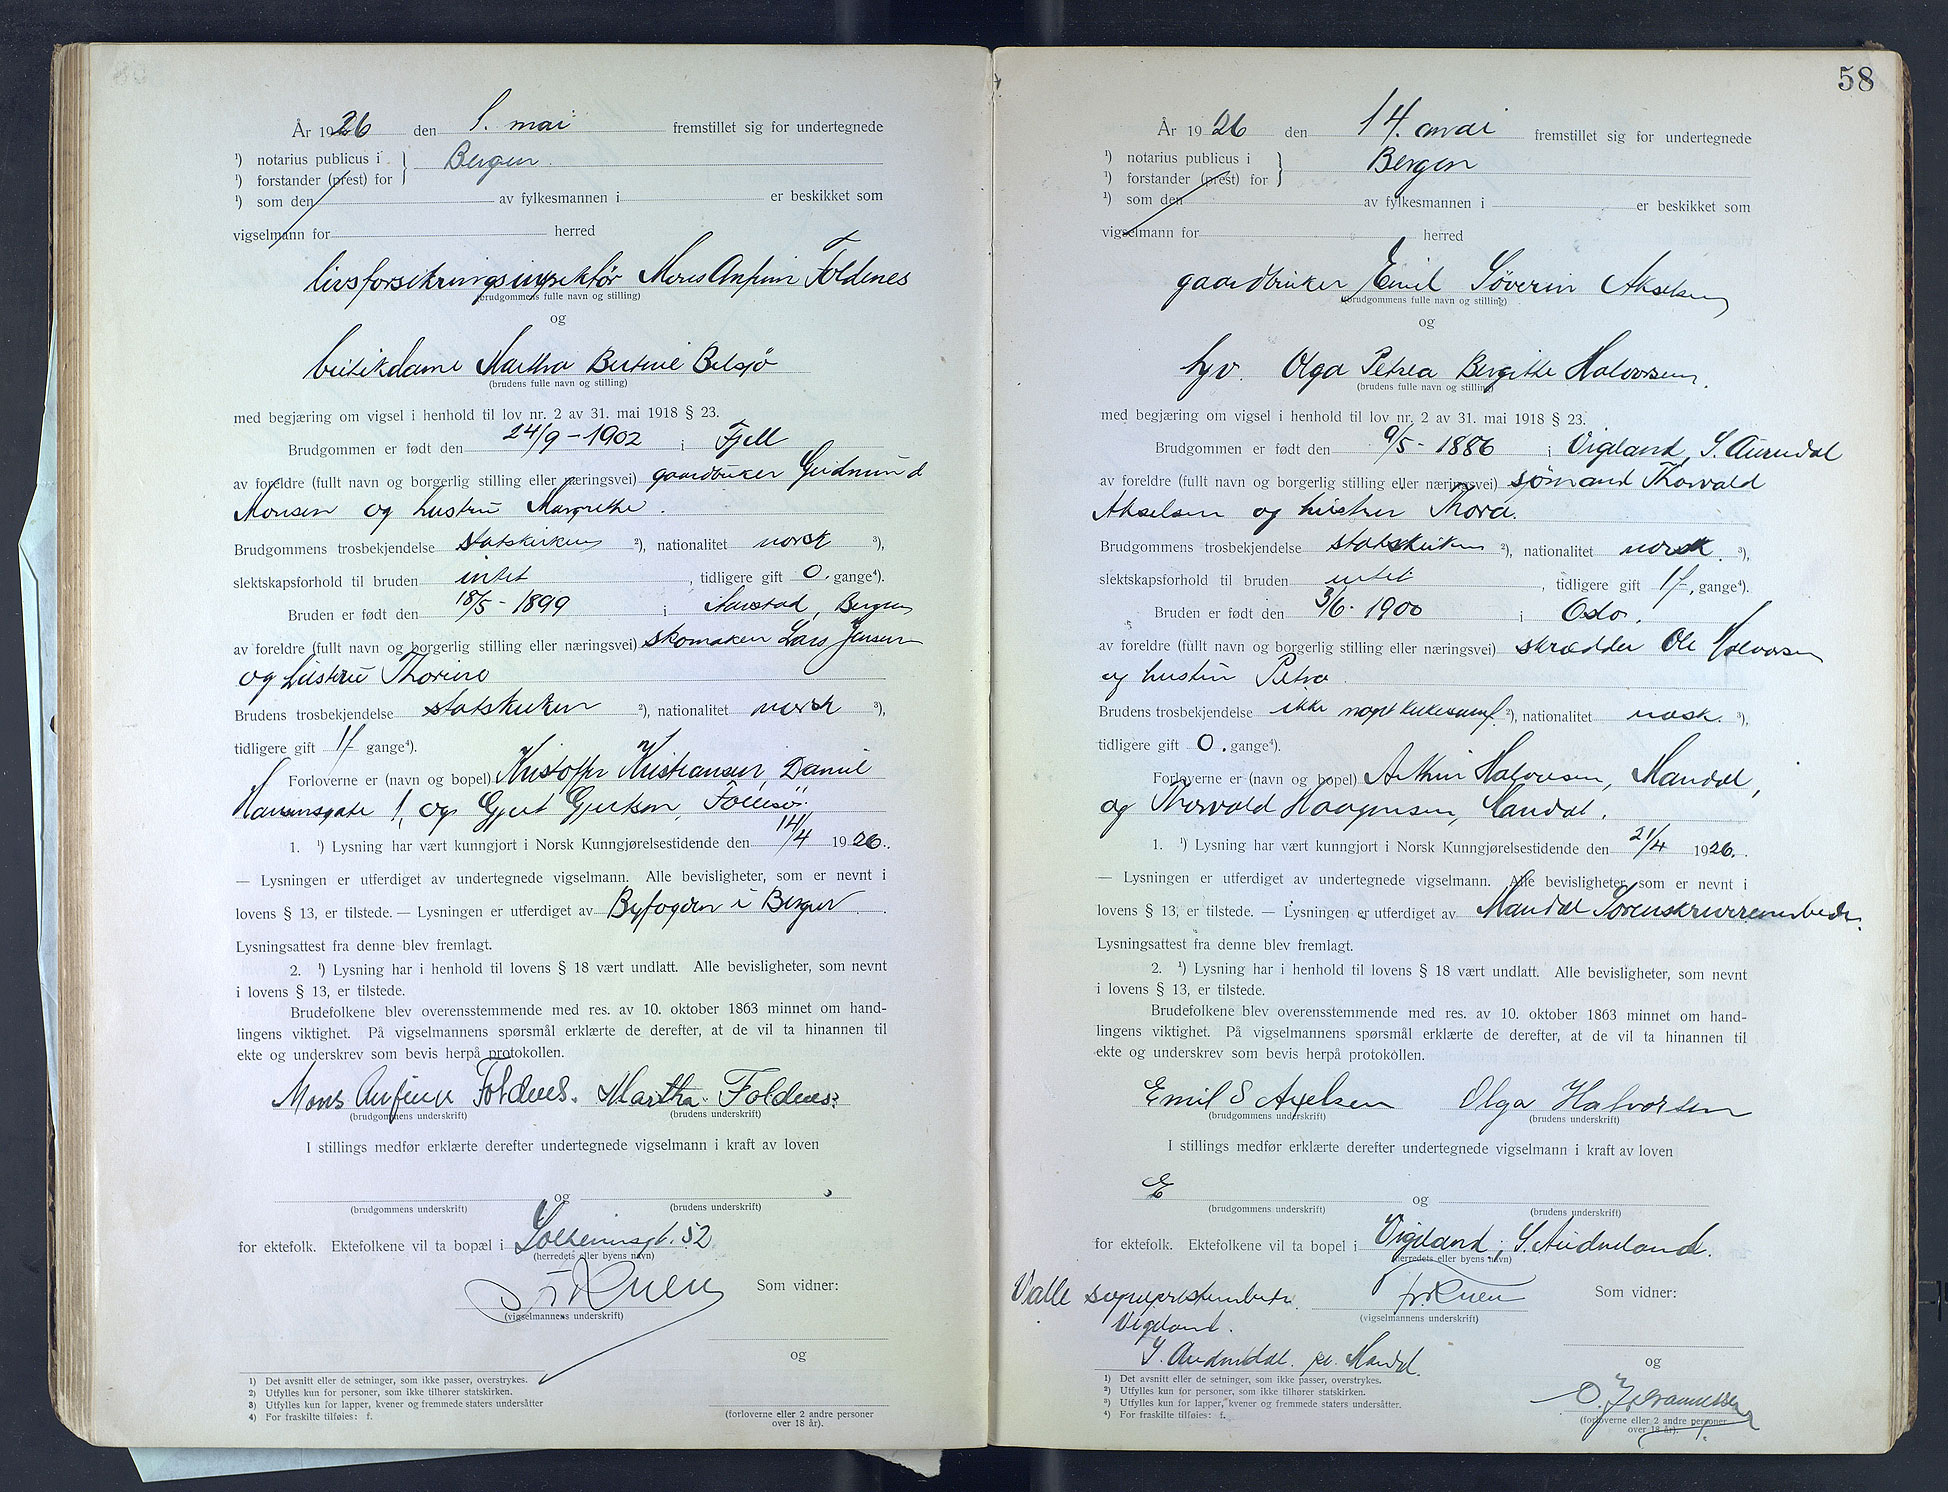 År 1926 den 1. mai fremstillet sig for undertegnede
¹) notarius publicus i } Bergen.
¹) forstander (prest) for
¹) som den av fylkesmannen i er beskikket som
vigselmann for herred
livsforsikringsinspektør Mons Anfinn Foldenes
(brudgommens fulle navn og stilling)
og
butikdame Martha Bertine Belsjö
(brudens fulle navn og stilling)
med begjæring om vigsel i henhold til lov nr. 2 av 31. mai 1918 § 23.
Brudgommen er født den 24/9 - 1902 i Fjell
av foreldre (fullt navn og borgerlig stilling eller næringsvei) gaardbruker Gudmund
Monsen og hustru Margrethe.
Brudgommens trosbekjendelse statskirken ²), nationalitet norsk ³),
slektskapsforhold til bruden intet, tidligere gift 0. gange⁴).
Bruden er født den 18/5 - 1899 i Aarstad, Bergen
av foreldre (fullt navn og borgerlig stilling eller næringsvei) skomaker Lars Jensen
og hustru Thorine
Brudens trosbekjendelse statskirken ²), nationalitet norsk ³),
tidligere gift 1f gange⁴).
Forloverne er (navn og bopel) Kristoffer Kristiansen, Daniel
Hansensgate 1, og Gjert Gjertsen, Follesö.
1. ¹) Lysning har vært kunngjort i Norsk Kunngjørelsestidende den 14/4 1926.
— Lysningen er utferdiget av undertegnede vigselmann. Alle bevisligheter, som er nevnt i
lovens § 13, er tilstede. — Lysningen er utferdiget av Byfogden i Bergen.
Lysningsattest fra denne blev fremlagt.
2. ¹) Lysning har i henhold til lovens § 18 vært undlatt. Alle bevisligheter, som nevnt
i lovens § 13, er tilstede.
Brudefolkene blev overensstemmende med res. av 10. oktober 1863 minnet om hand-
lingens viktighet. På vigselmannens spørsmål erklærte de derefter, at de vil ta hinannen til
ekte og underskrev som bevis herpå protokollen.
Mons Anfinn Foldnes. Martha Foldnes.
(brudgommens underskrift) (brudens underskrift)
I stillings medfør erklærte derefter undertegnede vigselmann i kraft av loven
og
(brudgommens underskrift) (brudens underskrift)
for ektefolk. Ektefolkene vil ta bopæl i Solheimsgt. 52
(herredets eller byens navn)
Som vidner:
(vigselmannens underskrift)
og
1) Det avsnitt eller de setninger, som ikke passer, overstrykes.
2) Utfylles kun for personer, som ikke tilhører statskirken.
3) Utfylles kun for lapper, kvener og fremmede staters undersåtter
4) For fraskilte tilføies: f.
(forloverne eller 2 andre personer
over 18 år).
58
År 1926 den 14. mai fremstillet sig for undertegnede
¹) notarius publicus i } Bergen
¹) forstander (prest) for
¹) som den av fylkesmannen i er beskikket som
vigselmann for herred
gaardbruker Emil Søverin Akselsen
(brudgommens fulle navn og stilling)
og
hyv. Olga Petrea Bergitte Halvorsen.
(brudens fulle navn og stilling)
med begjæring om vigsel i henhold til lov nr. 2 av 31. mai 1918 § 23.
Brudgommen er født den 9/5 - 1886 i Vigeland, S. Audndal
av foreldre (fullt navn og borgerlig stilling eller næringsvei) sømand Thorvald
Akselsen og hustru Thora.
Brudgommens trosbekjendelse statskirken ²), nationalitet norsk ³),
slektskapsforhold til bruden intet, tidligere gift 1f, gange⁴).
Bruden er født den 3/6 - 1900 i Oslo.
av foreldre (fullt navn og borgerlig stilling eller næringsvei) skrædder Ole Halvorsen
og hustru Petra
Brudens trosbekjendelse ikke noget kirkesamf. ²), nationalitet norsk. ³),
tidligere gift 0. gange⁴).
Forloverne er (navn og bopel) Arthur Halvorsen, Mandal,
og Thorvald Haagensen, Mandal.
1. ¹) Lysning har vært kunngjort i Norsk Kunngjørelsestidende den 21/4 1926.
— Lysningen er utferdiget av undertegnede vigselmann. Alle bevisligheter, som er nevnt i
lovens § 13, er tilstede. — Lysningen er utferdiget av Mandal Sorenskriverembede.
Lysningsattest fra denne blev fremlagt.
2. ¹) Lysning har i henhold til lovens § 18 vært undlatt. Alle bevisligheter, som nevnt
i lovens § 13, er tilstede.
Brudefolkene blev overensstemmende med res. av 10. oktober 1863 minnet om hand-
lingens viktighet. På vigselmannens spørsmål erklærte de derefter, at de vil ta hinannen til
ekte og underskrev som bevis herpå protokollen.
Emil S Axelsen Olga Halvorsen
(brudgommens underskrift) (brudens underskrift)
I stillings medfør erklærte derefter undertegnede vigselmann i kraft av loven
E og
(brudgommens underskrift) (brudens underskrift)
for ektefolk. Ektefolkene vil ta bopel i Vigeland, S. Audneland.
(herredets eller byens navn)
Valle sogneprestembete. Som vidner:
Vigeland. (vigselmannens underskrift)
S. Audnedal. pr. Mandal. og
1) Det avsnitt eller de setninger, som ikke passer, overstrykes.
2) Utfylles kun for personer, som ikke tilhører statskirken.
3) Utfylles kun for lapper, kvener og fremmede staters undersåtter.
4) For fraskilte tilføies: f.
O. Johannessen
(forloverne eller 2 andre personer
over 18 år).